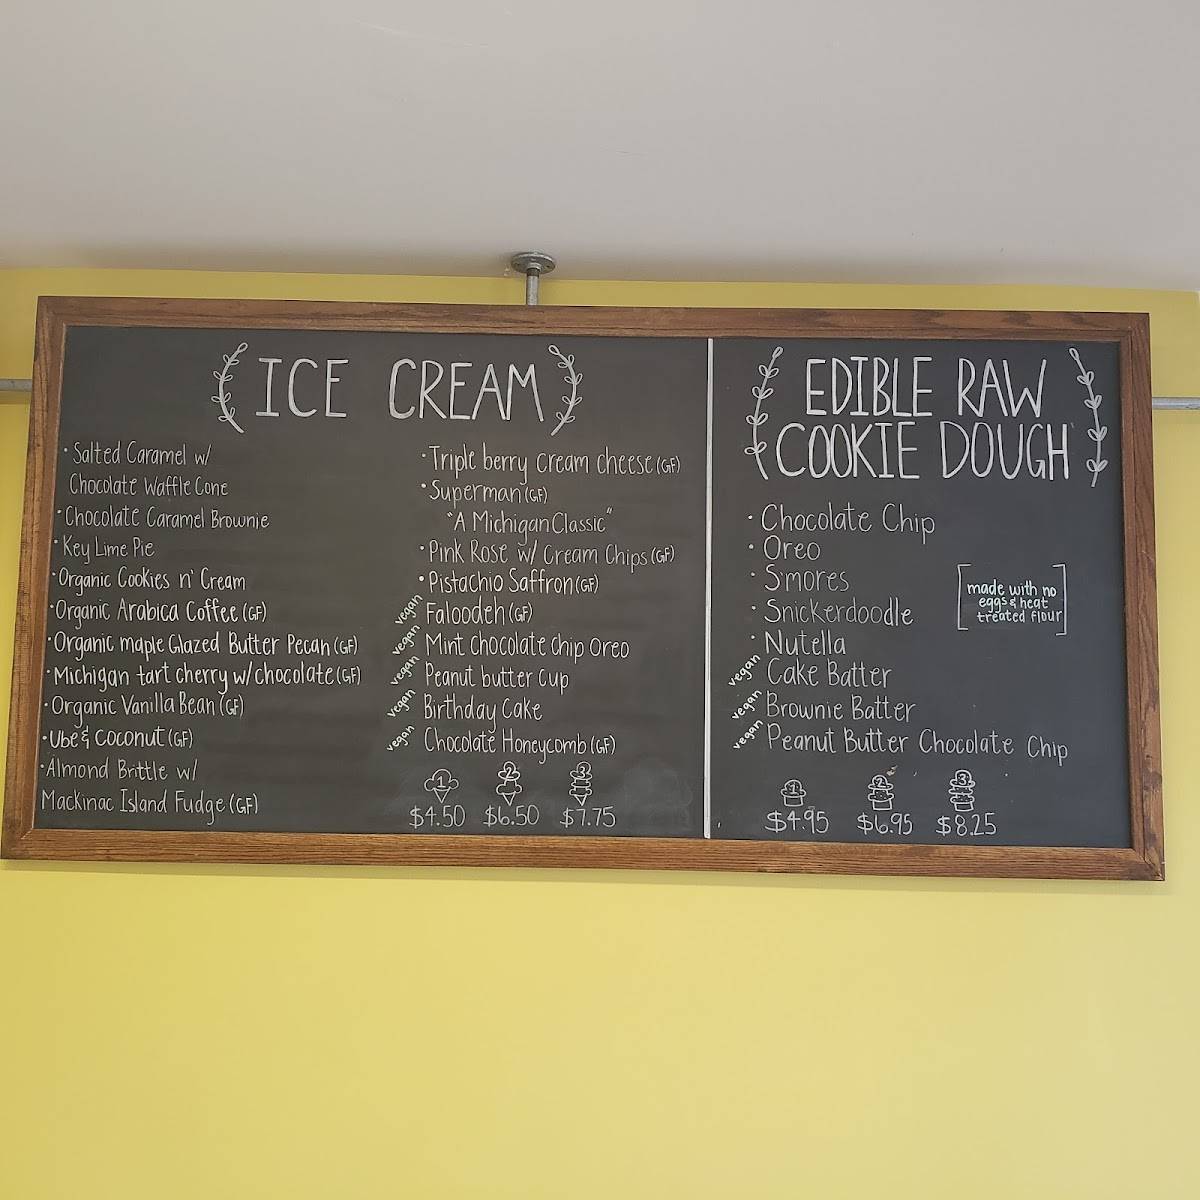 ICE CREAM
• Salted Caramel w/
Chocolate Waffle Cone
• Chocolate Caramel Brownie
• Key Lime Pie
• Organic Cookies n' Cream
• Organic Arabica Coffee (GF)
• Organic maple Glazed Butter Pecan (GF)
• Michigan tart cherry w/chocolate (GF)
• Organic Vanilla Bean (GF)
• Ube & coconut (GF)
• Almond Brittle w/
Mackinac Island Fudge (GF)
• Triple berry cream cheese (GF)
• Superman (GF)
"A Michigan Classic"
• Pink Rose w/ Cream Chips (GF)
• Pistachio Saffron (GF)
vegan Faloodeh (GF)
vegan Mint chocolate chip oreo
vegan Peanut butter cup
vegan Birthday Cake
vegan Chocolate Honeycomb (GF)
1 2 3
$4.50 $6.50 $7.75
EDIBLE RAW
COOKIE DOUGH
• Chocolate Chip
• Oreo
• S'mores
• Snickerdoodle
• Nutella
vegan Cake Batter
vegan Brownie Batter
vegan Peanut Butter Chocolate Chip
made with no
eggs & heat
treated flour
1 2 3
$4.95 $6.95 $8.25